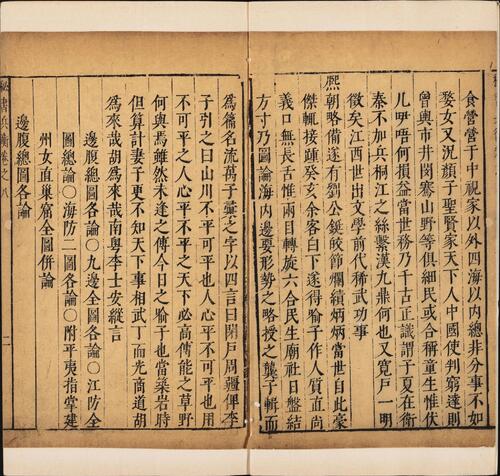 食營營于中視家以外四海以内總非分事不如
婺女又況顔子聖賢家天下人中國使判窮達則
曾與市井閔騫山野等俱細民或合稱童生惟伏
几咿唔何損益當世務乃千古正識謂于夏在衛
秦不加兵桐江之絲繫漢九鼎何也又寛戸一明
徵矣江西世出文學前代稀武功事
熙朝略備遂有劉公鋌皎節爛績炳炳當世自此豪
傑輒接踵癸亥余客白下遂得喻子作人質直尚
義口無長舌惟兩目轉旋六合民生廟社日盤結
方寸乃圖論海内邊要形勢之略授之龔子輯而
爲篇名流萬于彙之字以四言曰閑戸周疆俾李
子引之曰山川不平可平也人心平不可平也用
不可平之人心平不平之天下必高傅能之草野
何與焉雖然未逢之傅今日之喻于也當築岩時
但算計妻子更不知天下事相武丁而先商道胡
爲來哉胡爲來哉南粤李士安縱言
邊腹總圖各論〇九邊全圖各論〇江防全
圖總論〇海防二圖各論〇附平夷指掌建
州女直巢窟全圖併論
邊腹總圖各論
秘書兵衡卷之八
二